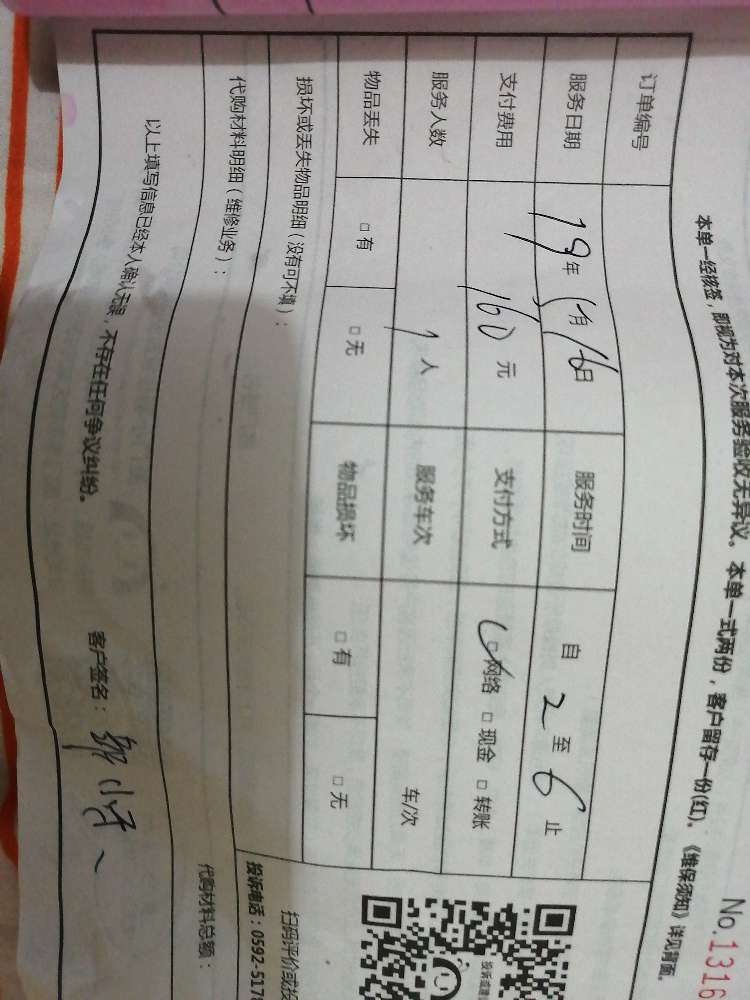 No.1316
本单一经核签，即视为对本次服务验收无异议。本单一式两份，客户留存一份(红)。《维保须知》详见背面。
订单编号
服务日期 19年 月16日 服务时间 自 2 至 6 止
支付费用 160元 支付方式 □网络 □现金 □转账
服务人数 1人 服务车次 车/次
物品丢失 □有 □无 物品损坏 □有 □无
损坏或丢失物品明细（没有可不填）：
扫码评价或投
投诉电话：0592-5178
代购材料明细（维修业务）：
代购材料总额：
以上填写信息已经本人确认无误，不存在任何争议纠纷。
客户签名：